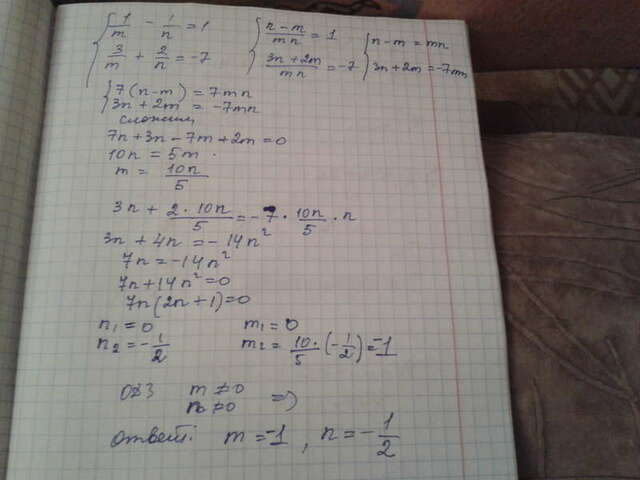 { 1/m - 1/n = 1   { (n-m)/mn = 1   { n-m = mn
{ 3/m + 2/n = -7   { (3n+2m)/mn = -7   { 3n+2m = -7mn
{ 7(n-m) = 7mn
{ 3n+2m = -7mn
сложим
7n+3n-7m+2m=0
10n = 5m.
m = 10n/5
3n + (2·10n)/5 = -7 · 10n/5 · n
3n + 4n = -14n²
7n = -14n²
7n+14n²=0
7n(2n+1)=0
n₁=0   m₁=0
n₂=-1/2   m₂= 10/5·(-1/2)=-1
ОДЗ m≠0
n≠0 =>
ответ: m=-1, n=-1/2